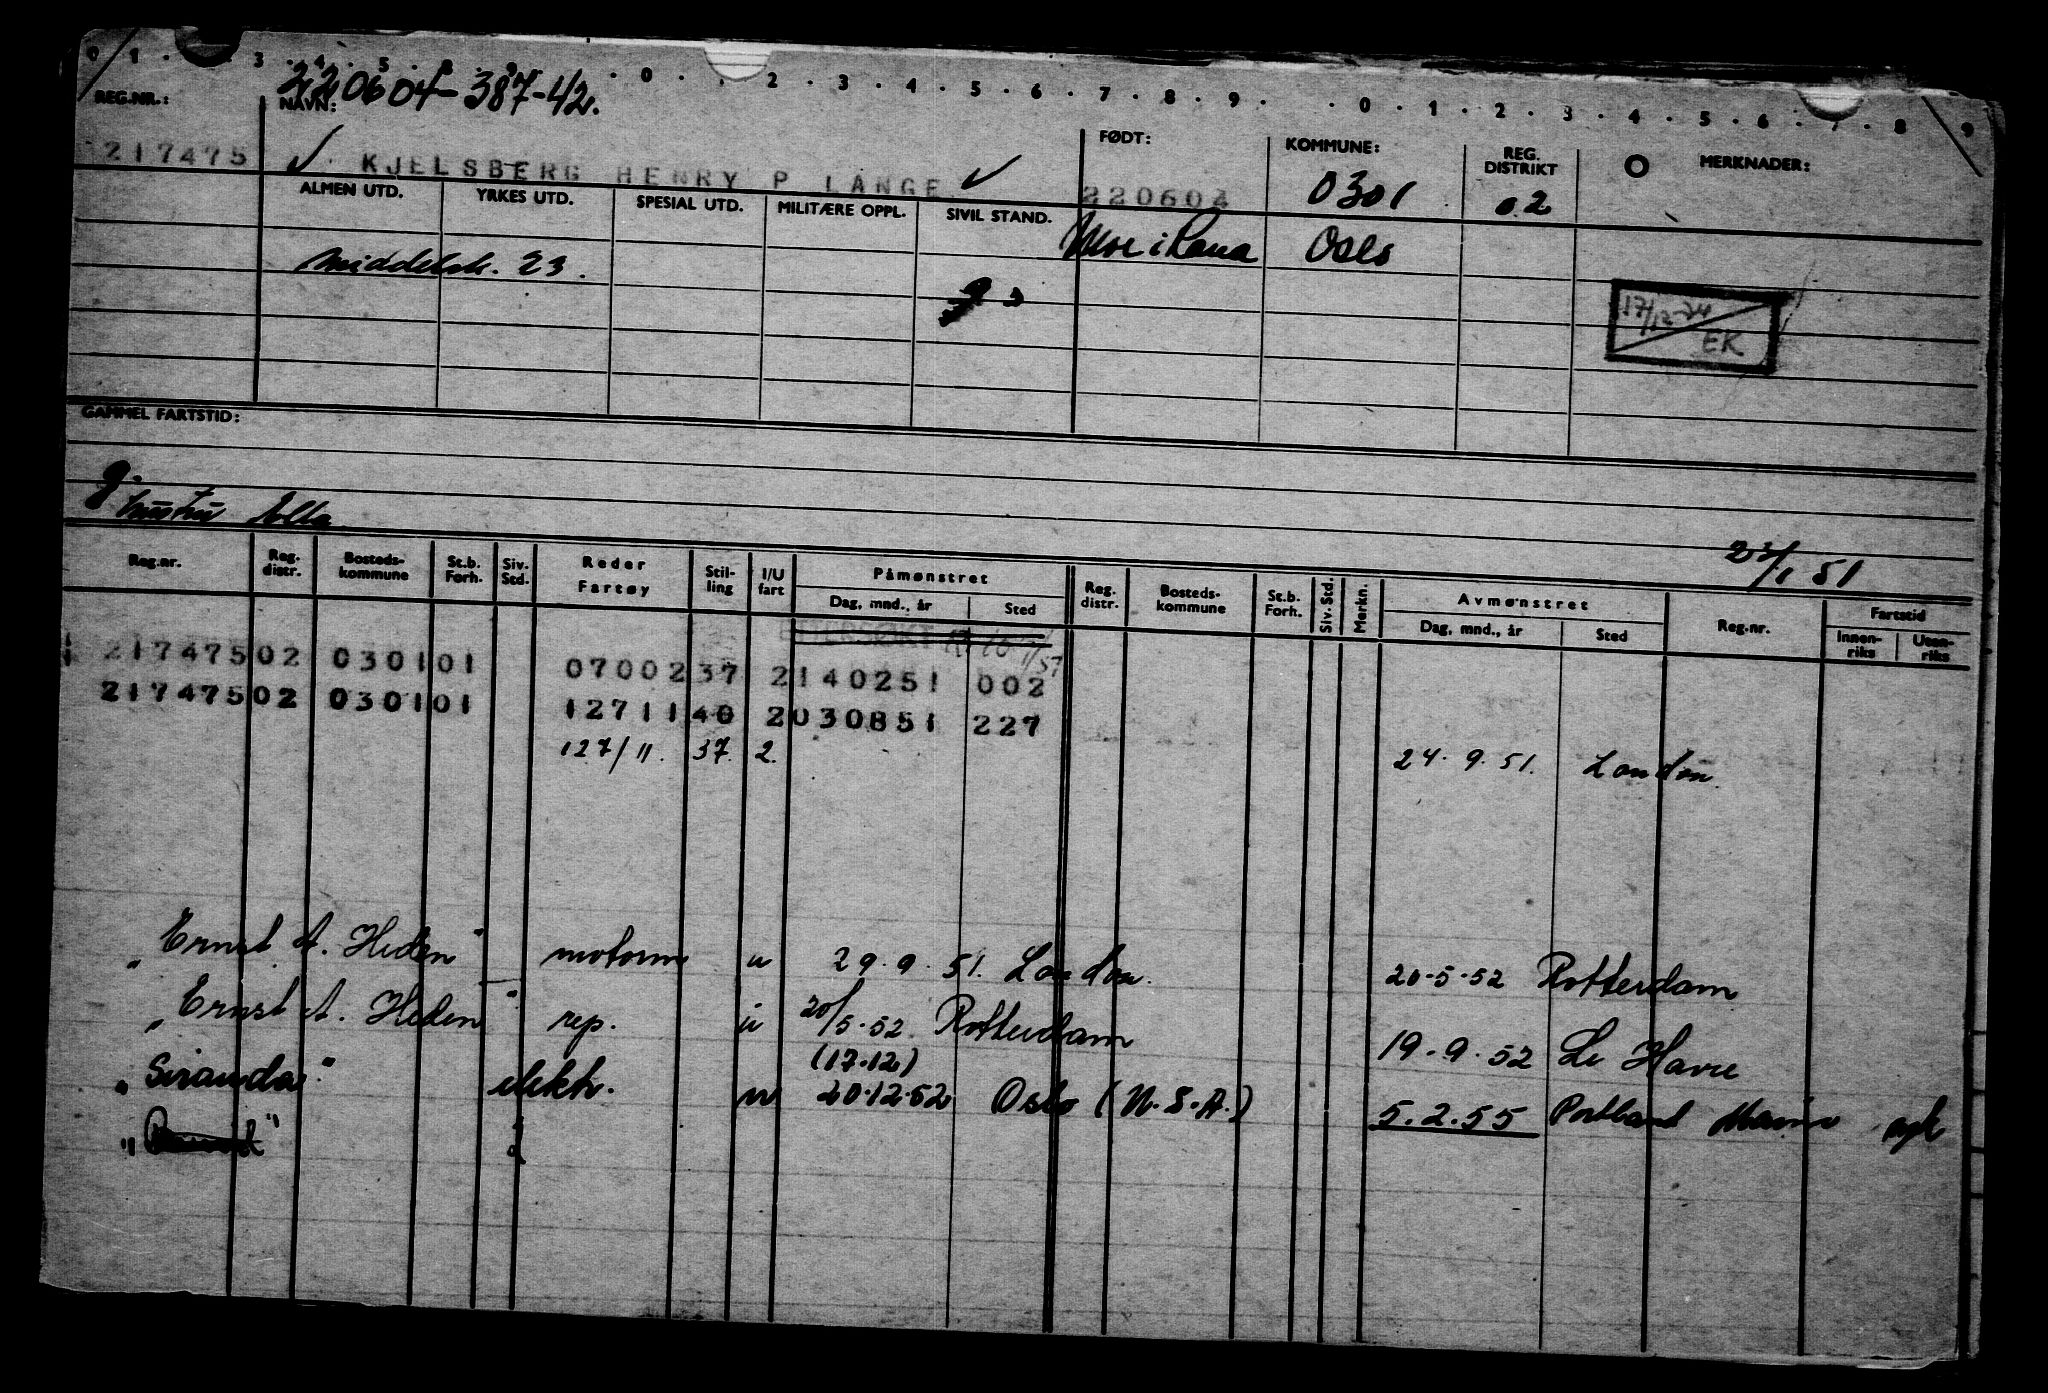 0 1 . . 3 . 4 . 5 . 6 . . 0 . . 2 . 3 . 4 . 5 . 6 . 7 . 8 . 9 . . 0 . 1 . 2 . 3 . 4 . 5 . 6 . 7 . 8 9
220604-387-42.
REG.NR.: NAVN: FØDT: KOMMUNE: REG. DISTRIKT MERKNADER:
217475 ✓ KJELSBERG HENRY P LANGE ✓ 220604 0301 02
ALMEN UTD. YRKES UTD. SPESIAL UTD. MILITÆRE OPPL. SIVIL STAND.
Middelsk. 23. Mo i Rana Oslo
17/12-74 EK
GAMMEL FARTSTID:
g.
hustru Ella
23/1 51
Reg.nr. Reg. distr. Bosteds- kommune St.b. Forh. Siv. Std. Reder Fartøy Stil- ling I/U fart Påmønstret Dag, mnd., år Sted Reg. distr. Bosteds- kommune St.b. Forh. Siv. Std. Merkn. Avmønstret Dag, mnd., år Sted Reg.nr. Fartstid Innen- riks Uten- riks
ETTERSØKT
217475 02 0301 01 07002 37 2 140251 002
217475 02 0301 01 12711 40 2 030851 227
127/11. 37. 2. 24.9.51. London.
"Ernst A. Heden" motorm u 29.9.51. London. 20.5.52 Rotterdam
"Ernst A. Heden" rep. u 20/5.52 Rotterdam 19.9.52 Le Havre
(17.12)
"Siranda" elektr. u 20.12.52 Oslo (U.S.A.) 5.2.55 Portland Maine syk